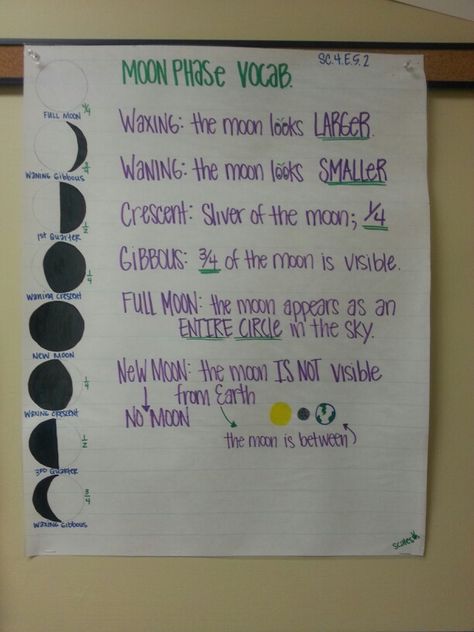 SC.4.E.5.2
MOON PHASE VOCAB.
WAXING: the moon looks LARGER.
WANING: the moon looks SMALLER
CRESCENT: Sliver of the moon; 1/4
GIBBOUS: 3/4 of the moon is visible.
FULL MOON: the moon appears as an
ENTIRE CIRCLE in the sky.
NEW MOON: the moon IS NOT visible
from Earth
NO MOON
the moon is between
4/4
FULL MOON
3/4
WANING GIBBOUS
1/2
1st QUARTER
1/4
WANING CRESCENT
NEW MOON
1/4
WAXING CRESCENT
1/2
3RD QUARTER
3/4
WAXING GIBBOUS